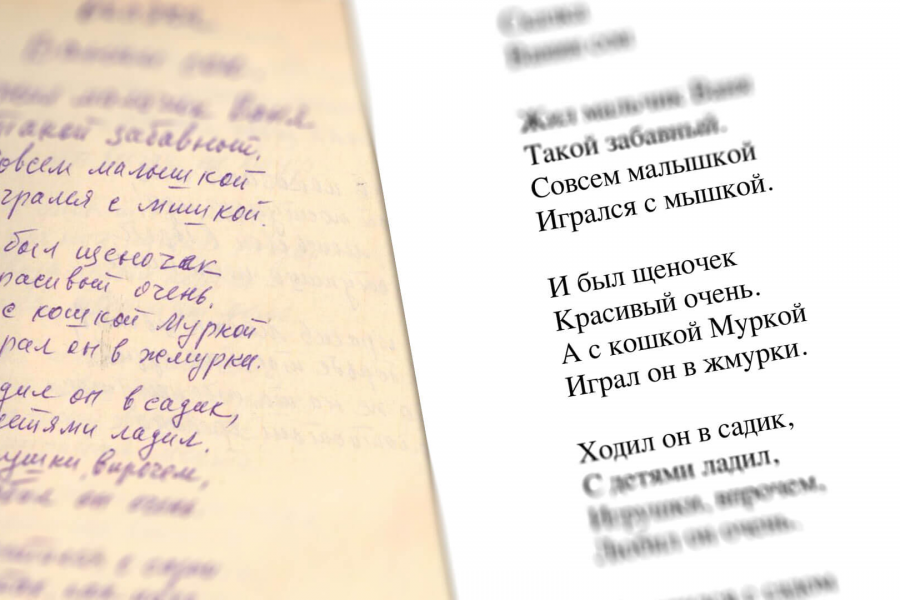 мальчик Ваня
такой забавный.
овсем малышкой
грался с мышкой.
был щеночек
расивый очень.
с кошкой Муркой
рал он в жмурки.
дил он в садик,
детями ладил.
ушки, впрочем,
он очень.
Сказка
Ванин сон
Жил мальчик Ваня
Такой забавный.
Совсем малышкой
Игрался с мышкой.
И был щеночек
Красивый очень.
А с кошкой Муркой
Играл он в жмурки.
Ходил он в садик,
С детями ладил,
Игрушки, впрочем,
Любил он очень.
с садом